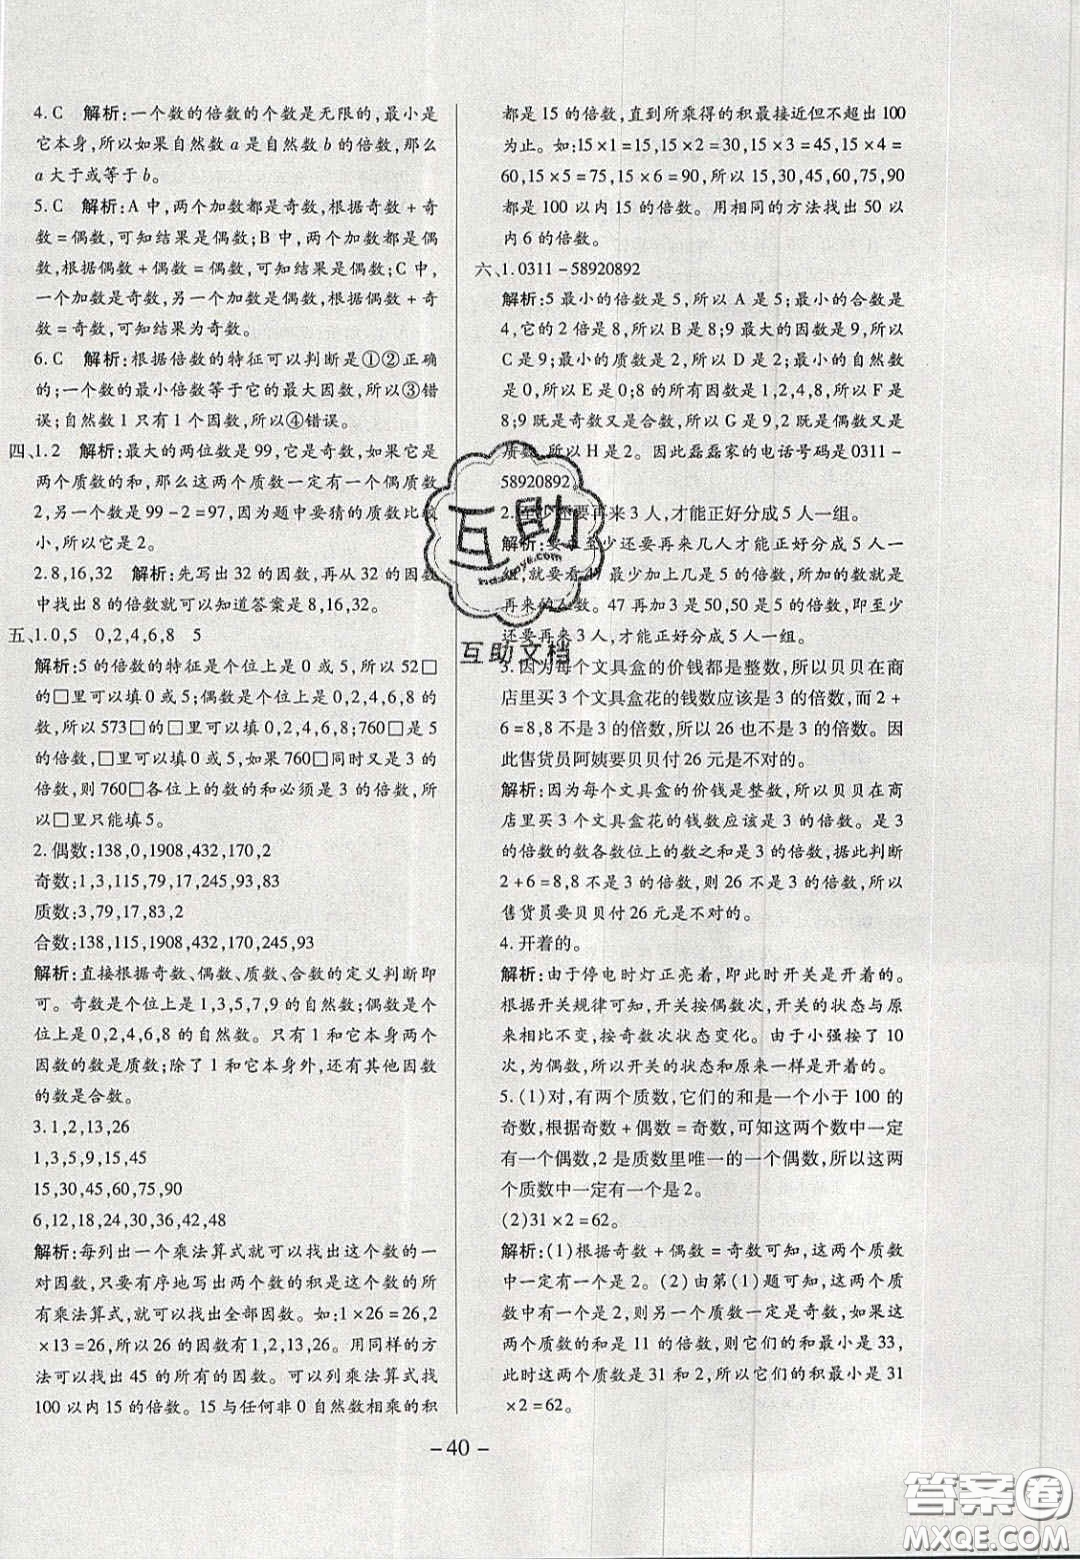 4. C　解析:一个数的倍数的个数是无限的,最小是
它本身,所以如果自然数 a 是自然数 b 的倍数,那么
a 大于或等于 b。
5. C　解析:A 中,两个加数都是奇数,根据奇数 + 奇
数 = 偶数,可知结果是偶数;B 中,两个加数都是偶
数,根据偶数 + 偶数 = 偶数,可知结果是偶数;C 中,
一个加数是奇数,另一个加数是偶数,根据偶数 + 奇
数 = 奇数,可知结果为奇数。
6. C　解析:根据倍数的特征可以判断是①②正确
的;一个数的最小倍数等于它的最大因数,所以③错
误;自然数 1 只有 1 个因数,所以④错误。
四、1. 2　解析:最大的两位数是 99,它是奇数,如果它是
两个质数的和,那么这两个质数一定有一个偶质数
2,另一个数是 99 - 2 = 97,因为题中要猜的质数比较
小,所以它是 2。
2. 8,16,32　解析:先写出 32 的因数,再从 32 的因数
中找出 8 的倍数就可以知道答案是 8,16,32。
五、1. 0,5　0,2,4,6,8　5
解析:5 的倍数的特征是个位上是 0 或 5,所以 52□
的□里可以填 0 或 5;偶数的个位上是 0,2,4,6,8 的
数,所以 573□的□里可以填 0,2,4,6,8;760□是 5
的倍数,□里可以填 0 或 5,如果 760□同时又是 3 的
倍数,则 760□各位上的数的和必须是 3 的倍数,所
以□里只能填 5。
2. 偶数:138,0,1908,432,170,2
奇数:1,3,115,79,17,245,93,83
质数:3,79,17,83,2
合数:138,115,1908,432,170,245,93
解析:直接根据奇数、偶数、质数、合数的定义判断即
可。奇数是个位上是 1,3,5,7,9 的自然数;偶数是个
位上是 0,2,4,6,8 的自然数。只有 1 和它本身两个
因数的数是质数;除了 1 和它本身外,还有其他因数
的数是合数。
3. 1,2,13,26
1,3,5,9,15,45
15,30,45,60,75,90
6,12,18,24,30,36,42,48
解析:每列出一个乘法算式就可以找出这个数的一
对因数,只要有序地写出两个数的积是这个数的所
有乘法算式,就可以找出全部因数。如:1 × 26 = 26,2
× 13 = 26,所以 26 的因数有 1,2,13,26。用同样的方
法可以找出 45 的所有的因数。可以列乘法算式找
100 以内 15 的倍数。15 与任何非 0 自然数相乘的积
都是 15 的倍数,直到所乘得的积最接近但不超出 100
为止。如:15 × 1 = 15,15 × 2 = 30,15 × 3 = 45,15 × 4 =
60,15 × 5 = 75,15 × 6 = 90,所以 15,30,45,60,75,90
都是 100 以内 15 的倍数。用相同的方法找出 50 以
内 6 的倍数。
六、1. 0311 - 58920892
解析:5 最小的倍数是 5,所以 A 是 5;最小的合数是
4,它的 2 倍是 8,所以 B 是 8;9 最大的因数是 9,所以
C 是 9;最小的质数是 2,所以 D 是 2;最小的自然数
是 0,所以 E 是 0;8 的所有因数是 1,2,4,8,所以 F 是
8;9 既是奇数又是合数,所以 G 是 9,2 既是偶数又是
质数,所以 H 是 2。因此磊磊家的电话号码是 0311 -
58920892。
2. 至少还要再来 3 人,才能正好分成 5 人一组。
解析:要求至少还要再来几人才能正好分成 5 人一
组,就要看 47 最少加上几是 5 的倍数,所加的数就是
再来的人数。47 再加上 3 是 5 的倍数,即至少
还要再来 3 人,才能正好分成 5 人一组。
3. 因为每个文具盒的价钱都是整数,所以贝贝在商
店里买 3 个文具盒花的钱数应该是 3 的倍数,而 2 +
6 = 8,8 不是 3 的倍数,所以 26 也不是 3 的倍数。因
此售货员阿姨要贝贝付 26 元是不对的。
解析:因为每个文具盒的价钱是整数,所以贝贝在商
店里买 3 个文具盒花的钱数应该是 3 的倍数。是 3
的倍数的数各数位上的数之和是 3 的倍数,据此判断
2 + 6 = 8,8 不是 3 的倍数,则 26 不是 3 的倍数,所以
售货员要贝贝付 26 元是不对的。
4. 开着的。
解析:由于停电时灯正亮着,即此时开关是开着的。
根据开关规律可知,开关按偶数次,开关的状态与原
来相比不变,按奇数次状态变化。由于小强按了 10
次,为偶数,所以开关的状态和原来一样是开着的。
5. (1)对,有两个质数,它们的和是一个小于 100 的
奇数,根据奇数 + 偶数 = 奇数,可知这两个数中一定
有一个偶数,2 是质数里唯一的一个偶数,所以这两
个质数中一定有一个是 2。
(2)31 × 2 = 62。
解析:(1)根据奇数 + 偶数 = 奇数可知,这两个质数
中一定有一个是 2。(2)由第(1)题可知,这两个质
数中有一个是 2,则另一个质数一定是奇数,如果这
两个质数的和是 11 的倍数,则它们的和最小是 33,
此时这两个质数是 31 和 2,所以它们的积最小是 31
× 2 = 62。
互助
互助文档
- 40 -
答案圈
MXQE.COM